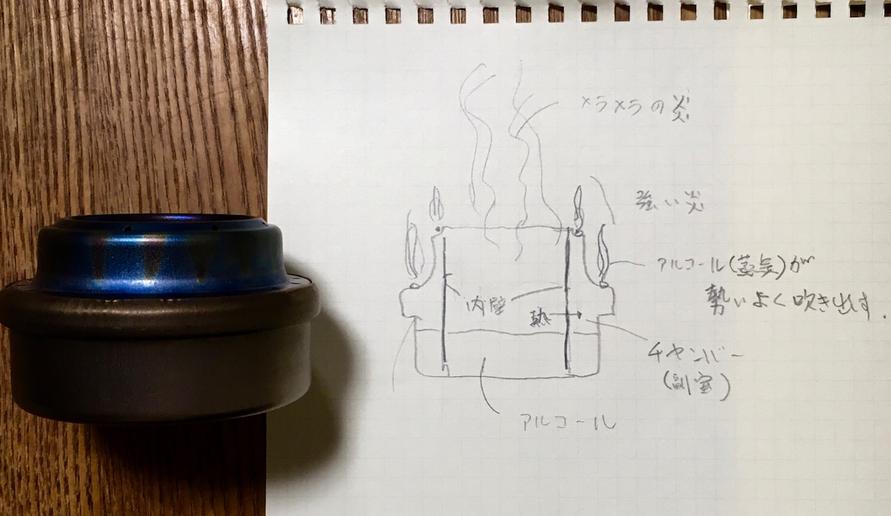 メラメラの炎
強い炎
アルコール(蒸気)が
勢いよく吹き出す.
内壁
熱
チャンバー
(副室)
アルコール